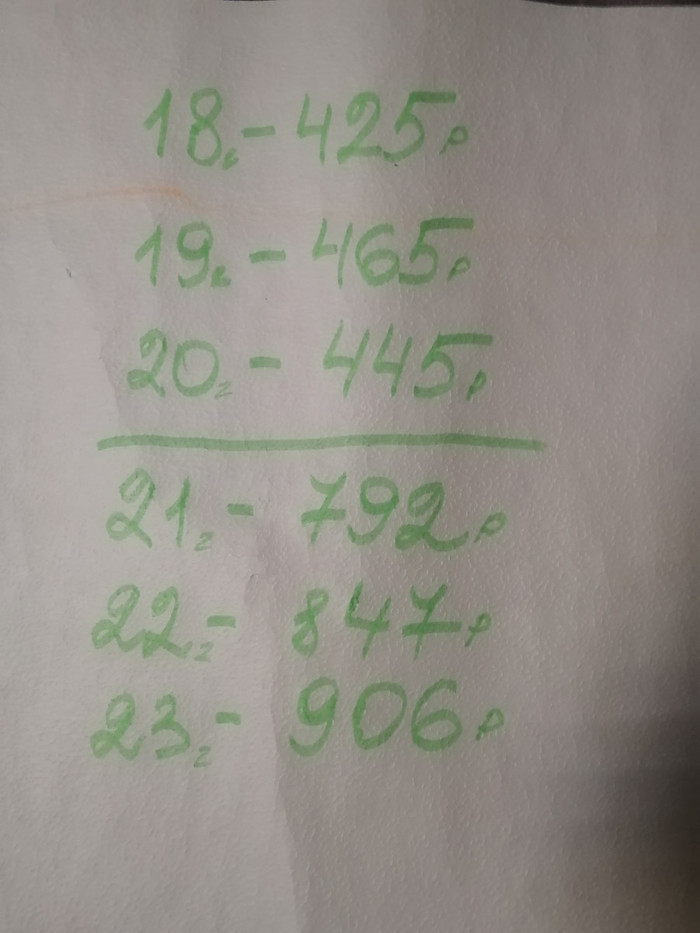 18г. - 425р
19г. - 465р
20г. - 445р
21г. - 792р
22г. - 847р
23г. - 906р